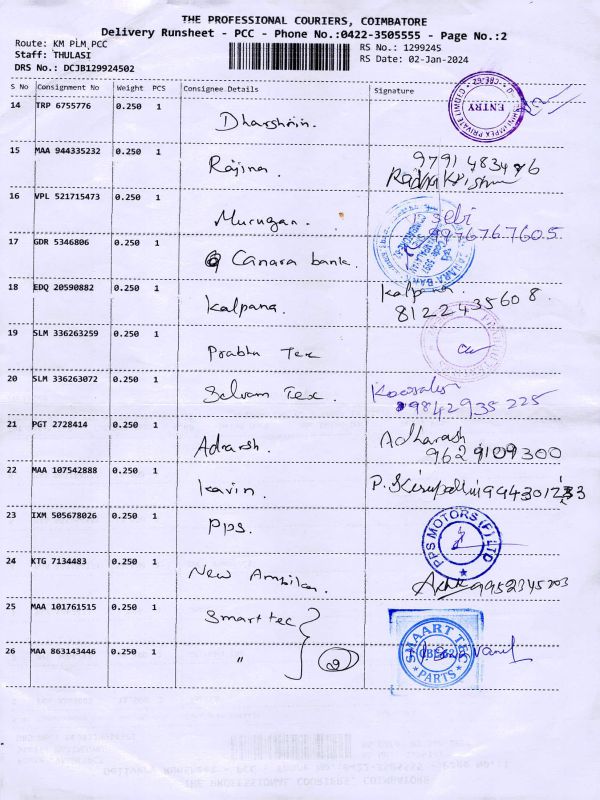 THE PROFESSIONAL COURIERS, COIMBATORE
Delivery Runsheet - PCC - Phone No.:0422-3505555 - Page No.:2
Route: KM PLM,PCC RS No.: 1299245
Staff: THULASI RS Date: 02-Jan-2024
DRS No.: DCJB129924502
S No Consignment No Weight PCS Consignee Details Signature
14 TRP 6755776 0.250 1 Dharshnin. ENTRY
15 MAA 944335232 0.250 1 Rajina. 9791483476
Radha Krishnan
16 VPL 521715473 0.250 1 Murugan. Sebi
9976767605
17 GDR 5346806 0.250 1 Canara bank.
18 EDQ 20590882 0.250 1 Kalpana. Kalpana.
8122435608.
19 SLM 336263259 0.250 1 Prabhu Tex
20 SLM 336263072 0.250 1 Selvam Tex.
9842935225
21 PGT 2728414 0.250 1 Adharsh. Adharash
9629109300
22 MAA 107542888 0.250 1 Kavin. P.
23 IXM 505678026 0.250 1 PPS. PPS MOTORS (P) LTD
24 KTG 7134483 0.250 1 New Ambika. 9952345203
25 MAA 101761515 0.250 1 Smart tec
26 MAA 863143446 0.250 1 " 2 SMAART TEC
CBE-62
PARTS